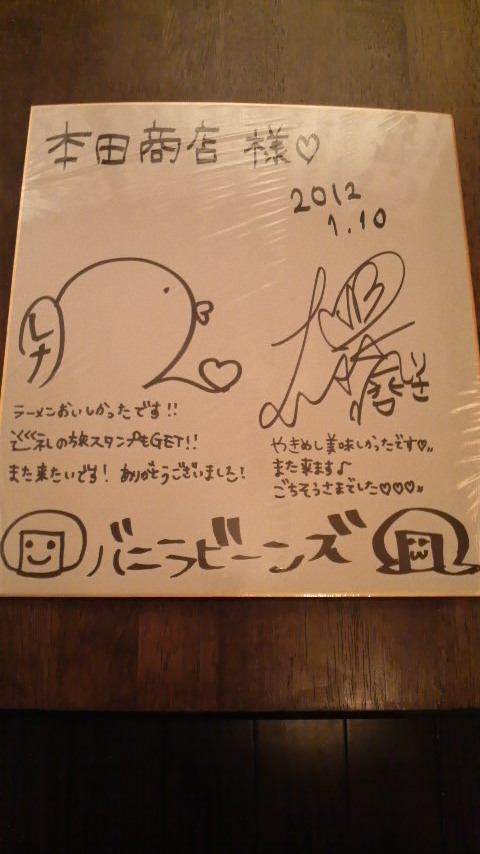 本田商店 様♡
2012
1.10
レナ
リサ
ラーメンおいしかったです!!
巡礼の旅スタンプもGET!!
また来たいです! ありがとうございました!
やきめし美味しかったです♡、、
また来ます♪
ごちそうさまでした♡♡♡、、
バニラビーンズ